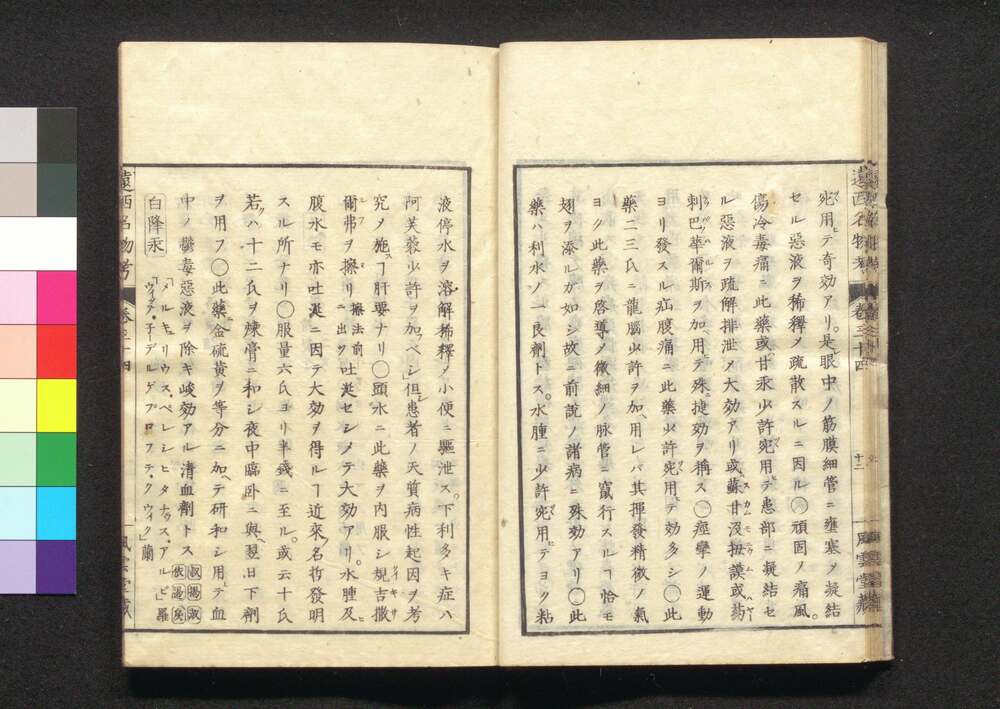 兊用ヒテ奇効アリ。是レ眼中ノ筋膜細管ニ壅塞シ凝結
セル惡液ヲ稀釋シ疏散スルニ因ル◯頑固ノ痛風
傷冷毒痛ニ此藥或ハ甘汞少許兊用シテ患部ニ凝結セ
ル惡液ヲ疏解排泄シ大効アリ或ハ蘇甘沒扭謨或ハ葯
刺巴華爾斯ヲ加ヘ用テ殊ニ捷効ヲ稱ス◯痙攣ノ運動
ヨリ發スル疝腹痛ニ此藥少許兊用ヒテ効多シ◯此
藥二三氏ニ龍腦少許ヲ加ヘ用レバ其揮發精微ノ氣
ヨク此藥ヲ啓導シ微細ノ脉管ニ竄行スルヿ恰モ
翅ヲ添ルガ如シ故ニ前說ノ諸病ニ殊効アリ◯此
藥ハ利水ノ一良劑トス。水腫ニ少許兊用シテヨク粘
遠西名物考 卷三十四 十二 風雲堂藏
液停水ヲ溶解稀釋シ小便ニ驅泄ス。下利多キ症ハ
阿芙蓉少許ヲ加フベシ但シ患者ノ天質病性起因ヲ考
究シ施スヿ肝要ナリ◯頭水ニ此藥ヲ内服シ規吉撒
爾弗ヲ擦リ擦法前ニ出ツ吐涎セシメテ大効アリ。水腫及ヒ
腹水モ亦吐涎ニ因テ大効ヲ得ルヿ近來名哲發明
スル所ナリ◯服量六氏ヨリ半錢ニ至ル。或云十氏
若クハ十二氏ヲ煉膏ニ和シ夜中臨臥ニ與ヘ翌日下劑
ヲ用フ◯此藥金硫黄ヲ等分ニ加ヘテ研和シ用ヒテ血
中ノ黴毒惡液ヲ除キ峻効アル清血劑トス
白降汞 「メルキュリウス、ペレシヒタチュス、アルビ」羅「ウィッテ、子ーデルゲプロフテ、クウィク」蘭
遠西名物考 卷三十四 風雲堂藏